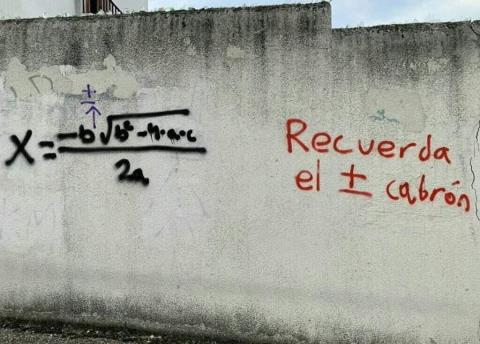 ±
↑
X = -b √b² - 4·a·c
2a
Recuerda
el ± cabrón